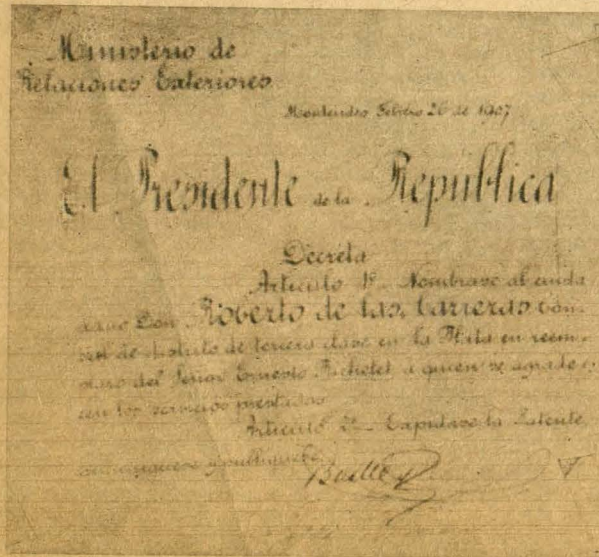 Ministerio de
Relaciones Exteriores
Montevideo Febrero 26 de 1907
El Presidente de la República
Decreta
Artículo 1º Nómbrase al ciuda
dano Don Roberto de las Carreras Cón-
sul de distrito de tercera clase en La Plata en reem-
plazo del Señor Ernesto Richelet a quien se agrade
cen los servicios prestados
Artículo 2º Expídase la Patente
comuníquese y publíquese
Batlle